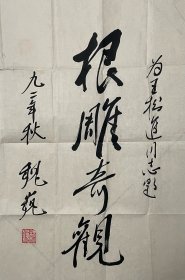 为王松道同志题
根雕奇觀
九二年秋 魏巍